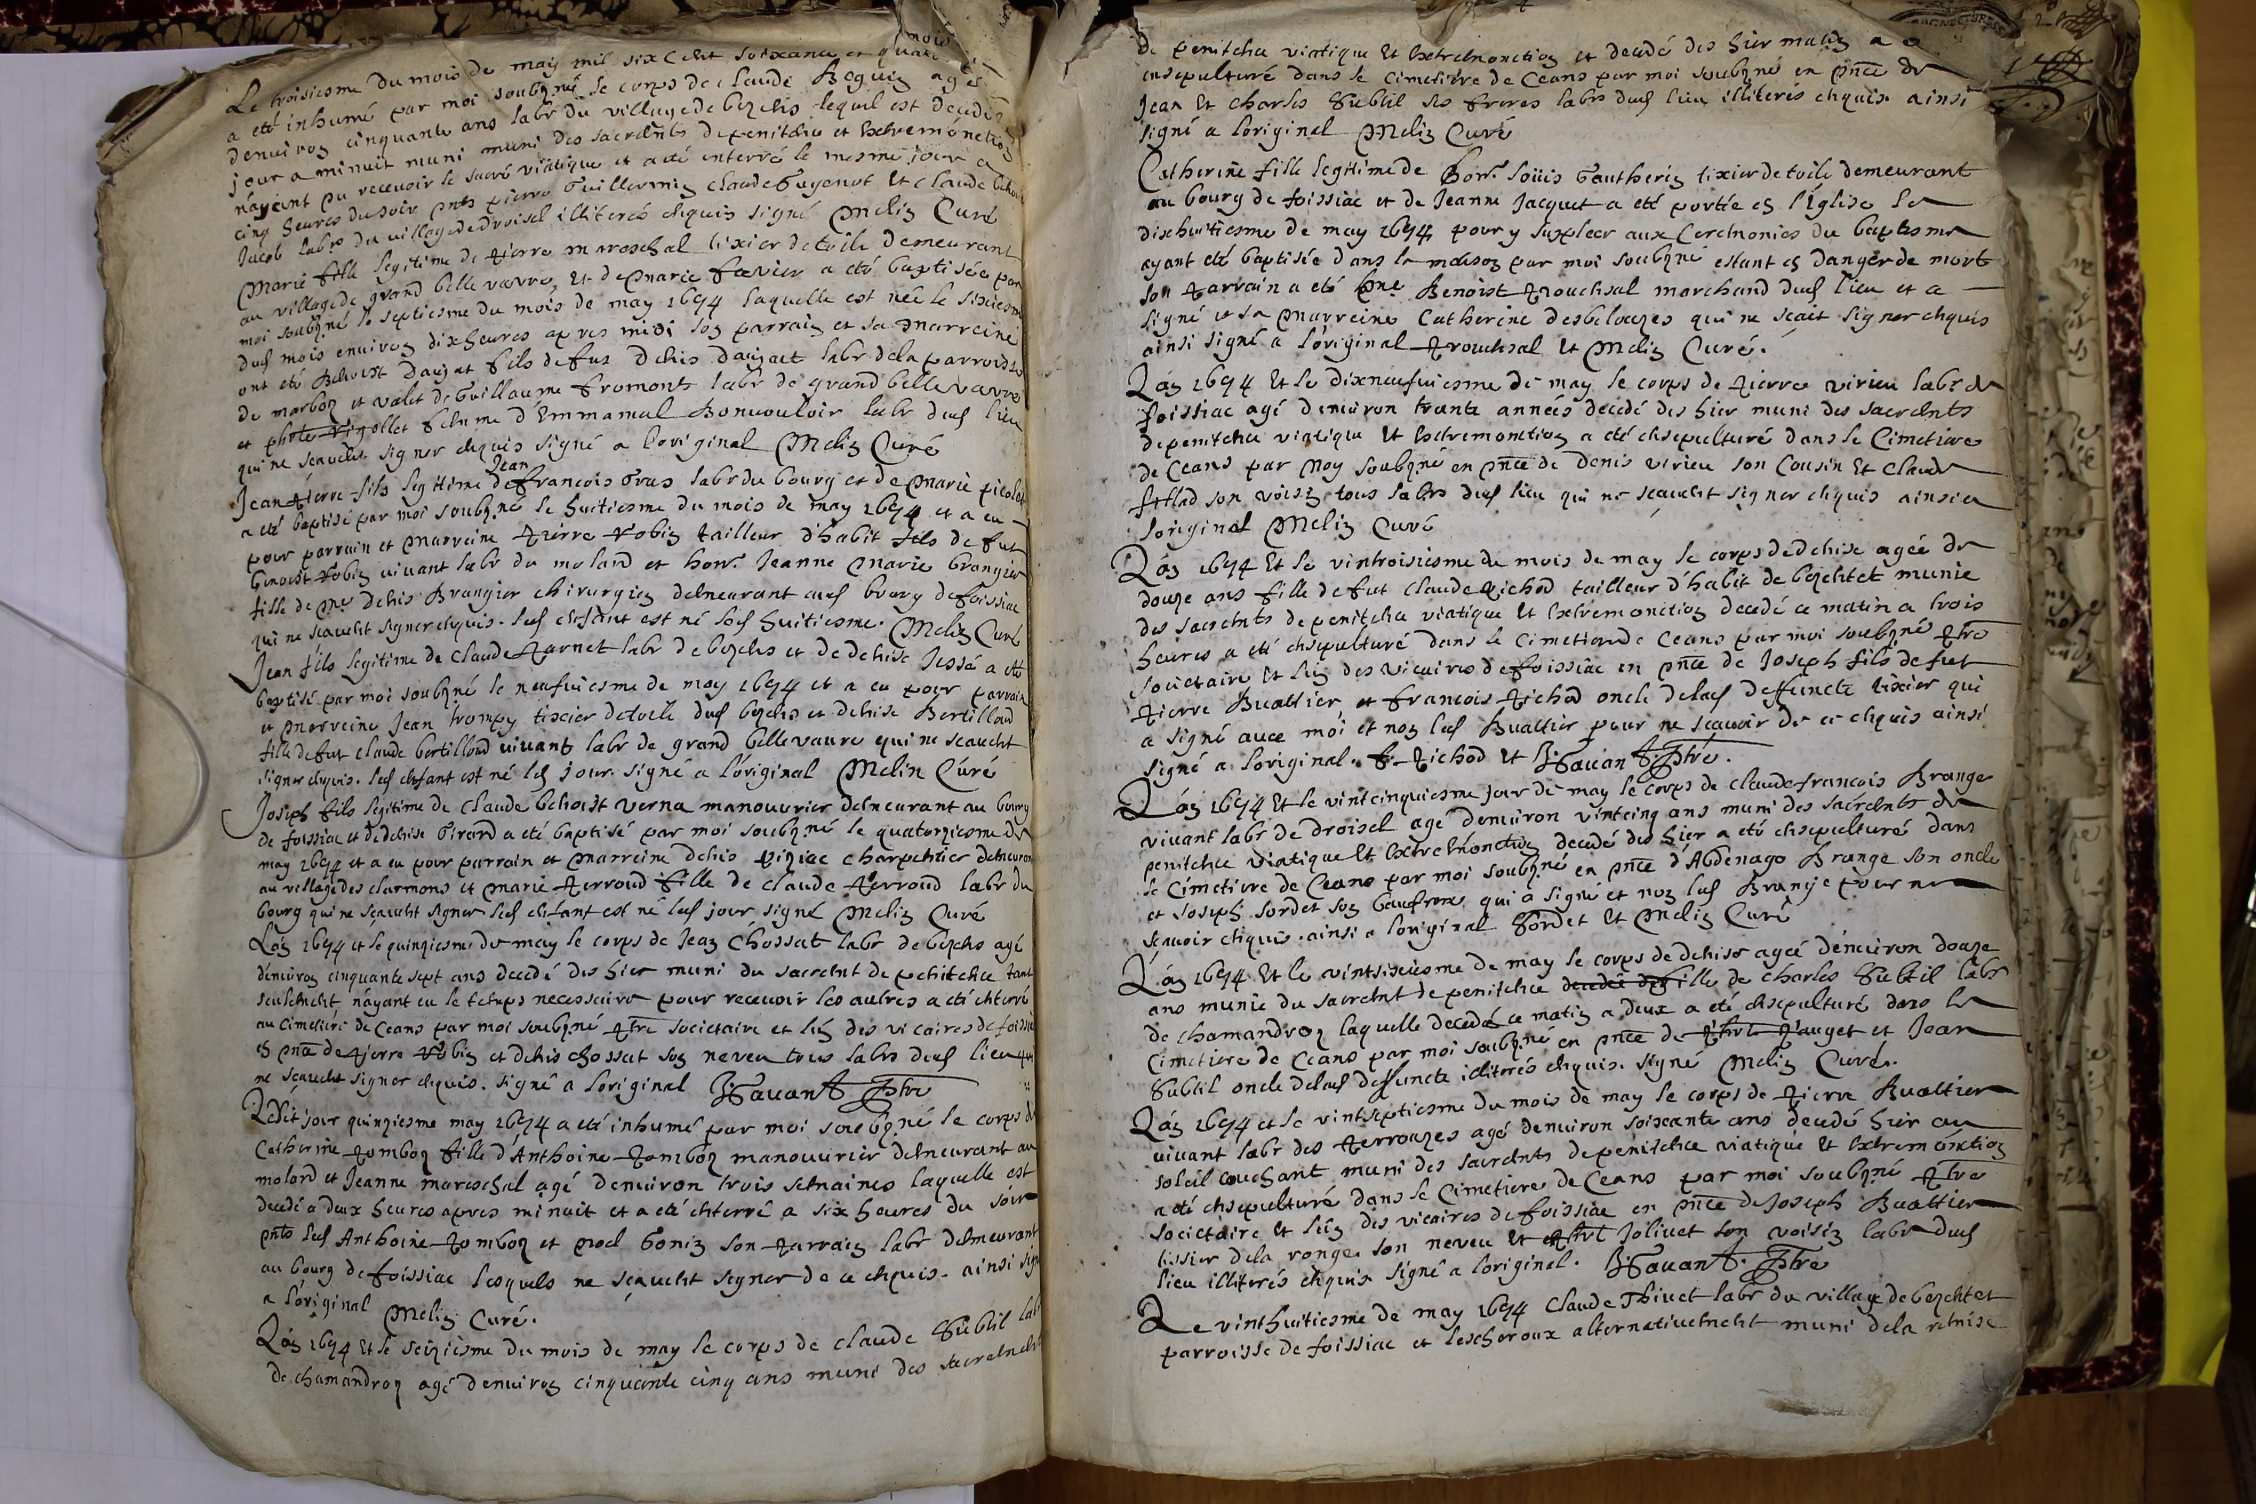 Le troisiesme du mois de may mil six cent soixante et quatre
a eté inhumé par moi soubzné le corps de claude Beguin agé
denviron cinquante ans labr du village de bezches lequel est decedé
jour a minuit muni muni des sacrents de penitence et extremonction
n'ayant pu recevoir le sacré viatique et a eté enterré le mesme jour a
cinq heures du soir pnts pierre Guillermin claude Guyenot Et claude
Jacob labrs du village de droisel illiterés enquis signé Melin Curé
Marie fille legitime de pierre mareschal tixier de toile demeurant
au village de grand belle vavre, Et de Marie favier a eté baptisée par
moi soubzné le septiesme du mois de may 1694 laquelle est née le sixiesme
dud mois environ dix heures apres midi son parrain et sa Marreine
ont eté Benoist daujat fils de fut denis daujat labr de la parroisse
de marboz et valet de Guillaume fromont labr de grand belle vavre
et femme d'Emmanuel Bonvouloir labr dud lieu
qui ne scavent signer enquis signé a loriginal Melin Curé
Jean
Jean pierre fils legitime de francois Gras labr du bourg et de Marie picolet
a eté baptisé par moi soubzné le huitiesme du mois de may 1694 et a eu
pour parrain et Marreine pierre robin tailleur d'habit fils de fut
benoist robin vivant labr du molard et honn. Jeanne Marie brangier
fille de Me denis Brangier chirurgien demeurant aud bourg de foissiac
qui ne scavent signer enquis. led enfant est né led huitiesme. Melin Curé
Jean fils legitime de claude parnet labr de bezches et de denise Jessé a eté
baptisé par moi soubzné le neufviesme de may 1694 et a eu pour parrain
et marreine Jean trompy tixier de toile dud bezches et denise Bertilloud
fille de fut claude bertilloud vivant labr de grand bellevavre qui ne scavent
signer enquis. led enfant est né led jour. signé a l'original Melin Curé
Joseph fils legitime de claude benoist verna manouvrier demeurant au bourg
de foissiac et de denise Girard a eté baptisé par moi soubzné le quatorziesme de
may 1694 et a eu pour parrain et marreine denis viziac charpentier demeurant
au village des clarmons et marie perroud fille de claude perroud labr du
bourg qui ne scavent signer led enfant est né led jour signé Melin Curé
L'an 1694 et le quinziesme de may le corps de Jean Chossat labr de bezches agé
d'environ cinquante sept ans decedé des hier muni du sacrent de penitence tant
seulement n'ayant eu le temps necessaire pour recevoir les autres a eté enterré
au cimetiere de Ceans par moi soubzné ptre societaire et l'un des vicaires de foissiac
en pnce de pierre robin et denis chossat son neveu tous labrs dud lieu qui
ne scavent signer enquis. signé a loriginal B. Savant ptre
Ledit jour quinziesme may 1694 a eté inhumé par moi soubzné le corps de
Catherine pombon fille d'Anthoine pombon manouvrier demeurant au
molard et Jeanne mareschal agé denviron trois semaines laquelle est
decedé a deux heures apres minuit et a eté enterré a six heures du soir
pnts led Anthoine pombon et noel Gonin son parrain labr demeurant
au bourg de foissiac lesquels ne scavent signer de ce enquis. ainsi signé
a loriginal Melin Curé.
L'an 1694 Et le seiziesme du mois de may le corps de claude Subtil labr
de chamandrey agé denviron cinquante cinq ans muni des sacrements
de penitence viatique Et Extremonction et decedé des hier matin a eté
ensepulturé dans le cimetiere de Ceans par moi soubzné en pnce de
Jean Et charles Subtil ses freres labrs dud lieu illiterés enquis ainsi
signé a loriginal Melin Curé
Catherine fille legitime de honn. Loüis Gautherin tixier de toile demeurant
au bourg de foissiac et de Jeanne Jacquet a eté portée en l'Église le
dixhuitiesme de may 1694 pour y supleer aux Ceremonies du baptesme
ayant eté baptisée dans la maison par moi soubzné estant en danger de mort
son parrain a eté hne Benoist Trouchsal marchand dud lieu et a
signé et sa Marreine Catherine desbelouzes qui ne scait signer enquis
ainsi signé a l'original Trouchsal Et Melin Curé.
L'an 1694 Et le dixneufviesme de may le corps de pierre virieu labr de
foissiac agé denviron trente années decedé des hier muni des sacrents
de penitence viatique Et Extremonction a eté ensepulturé dans le Cimetiere
de Ceans par moy soubzné en pnce de denis virieu son Cousin Et Claude
son voisin tous labrs dud lieu qui ne scavent signer enquis ainsi a
loriginal Melin Curé
L'an 1694 Et le vintroisiesme du mois de may le corps de denise agée de
douze ans fille de fut claude pichod tailleur d'habit de bezentet munie
des sacrents de penitence viatique Et Extremonction decedé ce matin a trois
heures a eté ensepulturé dans le cimetiere de Ceans par moi soubzné ptre
societaire Et l'un des vicaires de foissiac en pnce de Joseph fils de fut
pierre Buattier et francois pichod oncle de lad deffuncte tixier qui
a signé avec moi et non led Buattier pour ne scavoir de ce enquis ainsi
signé a loriginal. f. pichod Et B. Savant ptre.
L'an 1694 Et le vintcinquiesme jour de may le corps de claude francois Brange
vivant labr de droisel agé denviron vintcinq ans muni des sacrents de
penitence viatique Et Extremonction decedé des hier a eté ensepulturé dans
le Cimetiere de Ceans par moi soubzné en pnce d'Abdenago Brange son oncle
et Joseph sordet son beaufrere qui a signé et non led Brange pour ne
scavoir enquis. ainsi a loriginal Sordet Et Melin Curé
L'an 1694 Et le vintsixiesme de may le corps de denise agée d'environ douze
ans munie du sacrent de penitence decedée des fille de charles Subtil labr
de chamandrey laquelle decedée ce matin a deux a eté ensepulturé dans le
Cimetiere de Ceans par moi soubzné en pnce de et Jean
Subtil oncle de lad deffuncte illiterés enquis. signé Melin Curé.
L'an 1694 et le vintseptiesme du mois de may le corps de pierre Buattier
vivant labr des perrouzes agé denviron soixante ans decedé hier au
soleil couchant muni des sacrents de penitence viatique Et Extremonction
a eté ensepulturé dans le Cimetiere de Ceans par moi soubzné ptre
societaire Et l'un des vicaires de foissiac en pnce de Joseph Buattier
tissier de la ronge son neveu Et Jolivet son voisin labr dud
lieu illiterés enquis signé a loriginal. B. Savant ptre
Le vinthuitiesme de may 1694 Claude Thivet labr du village de bezentet
parroisse de foissiac et lescheroux alternativement muni de la remise